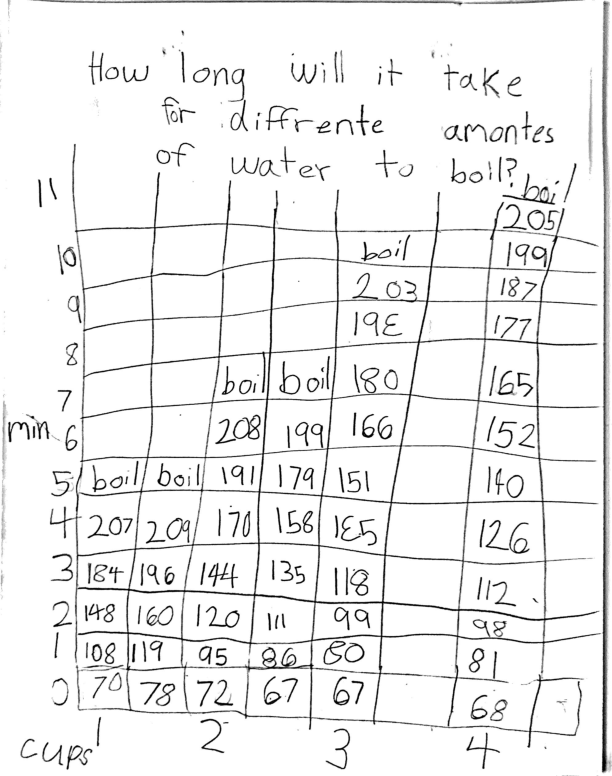 How long will it take
for diffrente amontes
of water to boil?
11 boil
205
10 boil 199
9 203 187
8 193 177
7 boil boil 180 165
min 6 208 199 166 152
5 boil boil 191 179 151 140
4 207 209 170 158 135 126
3 184 196 144 135 118 112
2 148 160 120 111 99 98
1 108 119 95 86 80 81
0 70 78 72 67 67 68
cups 1 2 3 4